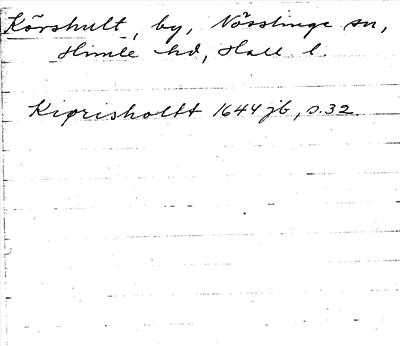 Körshult, by, Nösslinge sn,
Himle hd, Hall. l.
Kiørisholtt 1644 jb, s. 32.